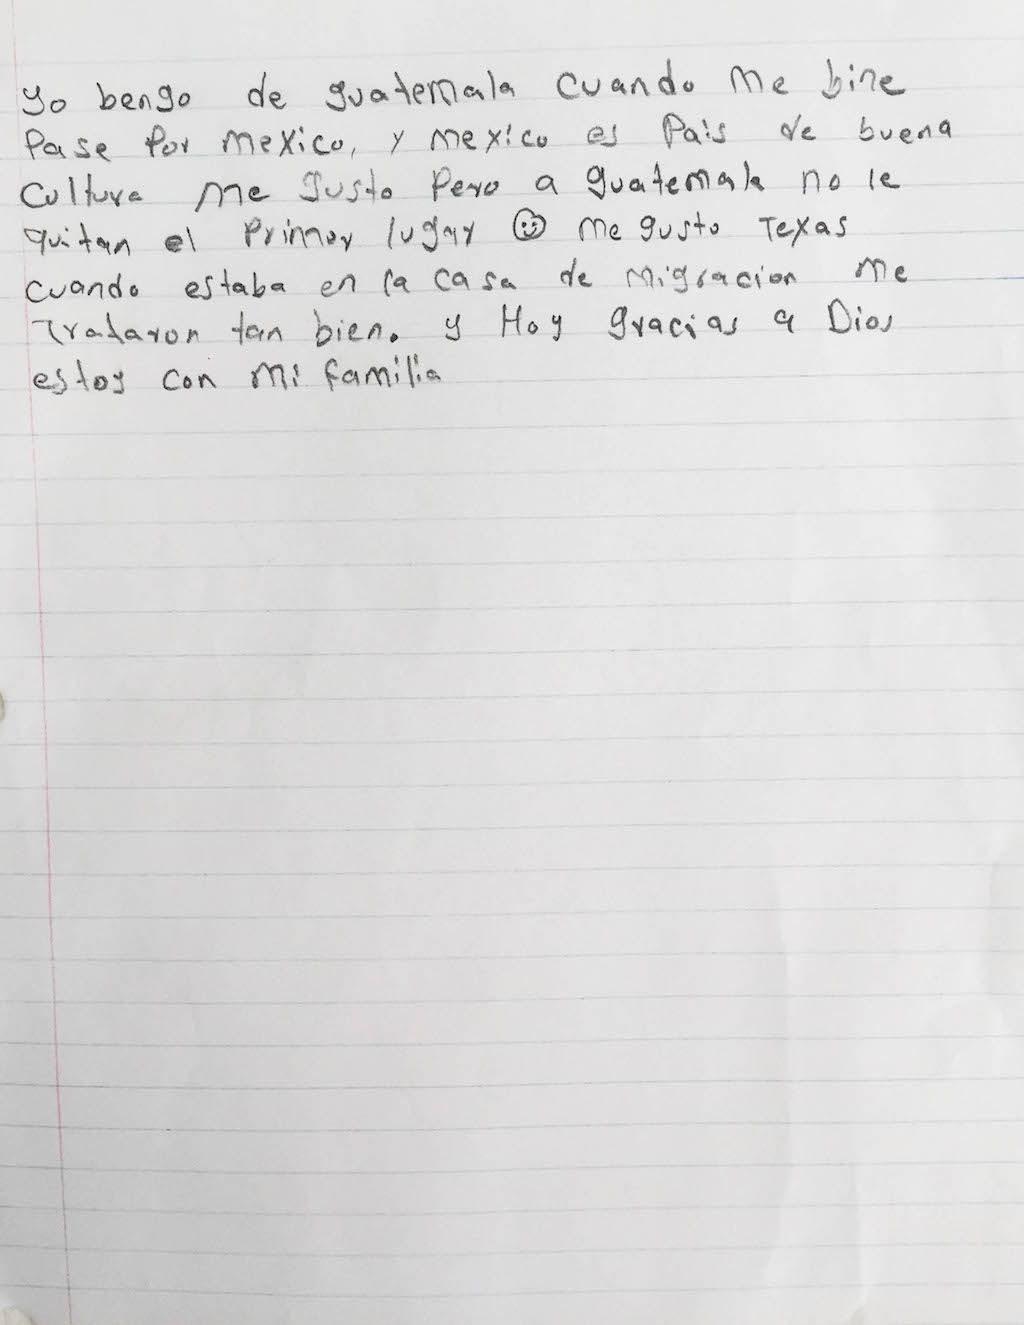 Yo bengo de guatemala cuando me bine
Pase Por mexico, y mexico es Pais de buena
Cultura me gusto Pero a guatemala no le
quitan el Primer lugar ☺ me gusto Texas
cuando estaba en la casa de migracion me
Trataron tan bien. y Hoy gracias a Dios
estoy con mi familia